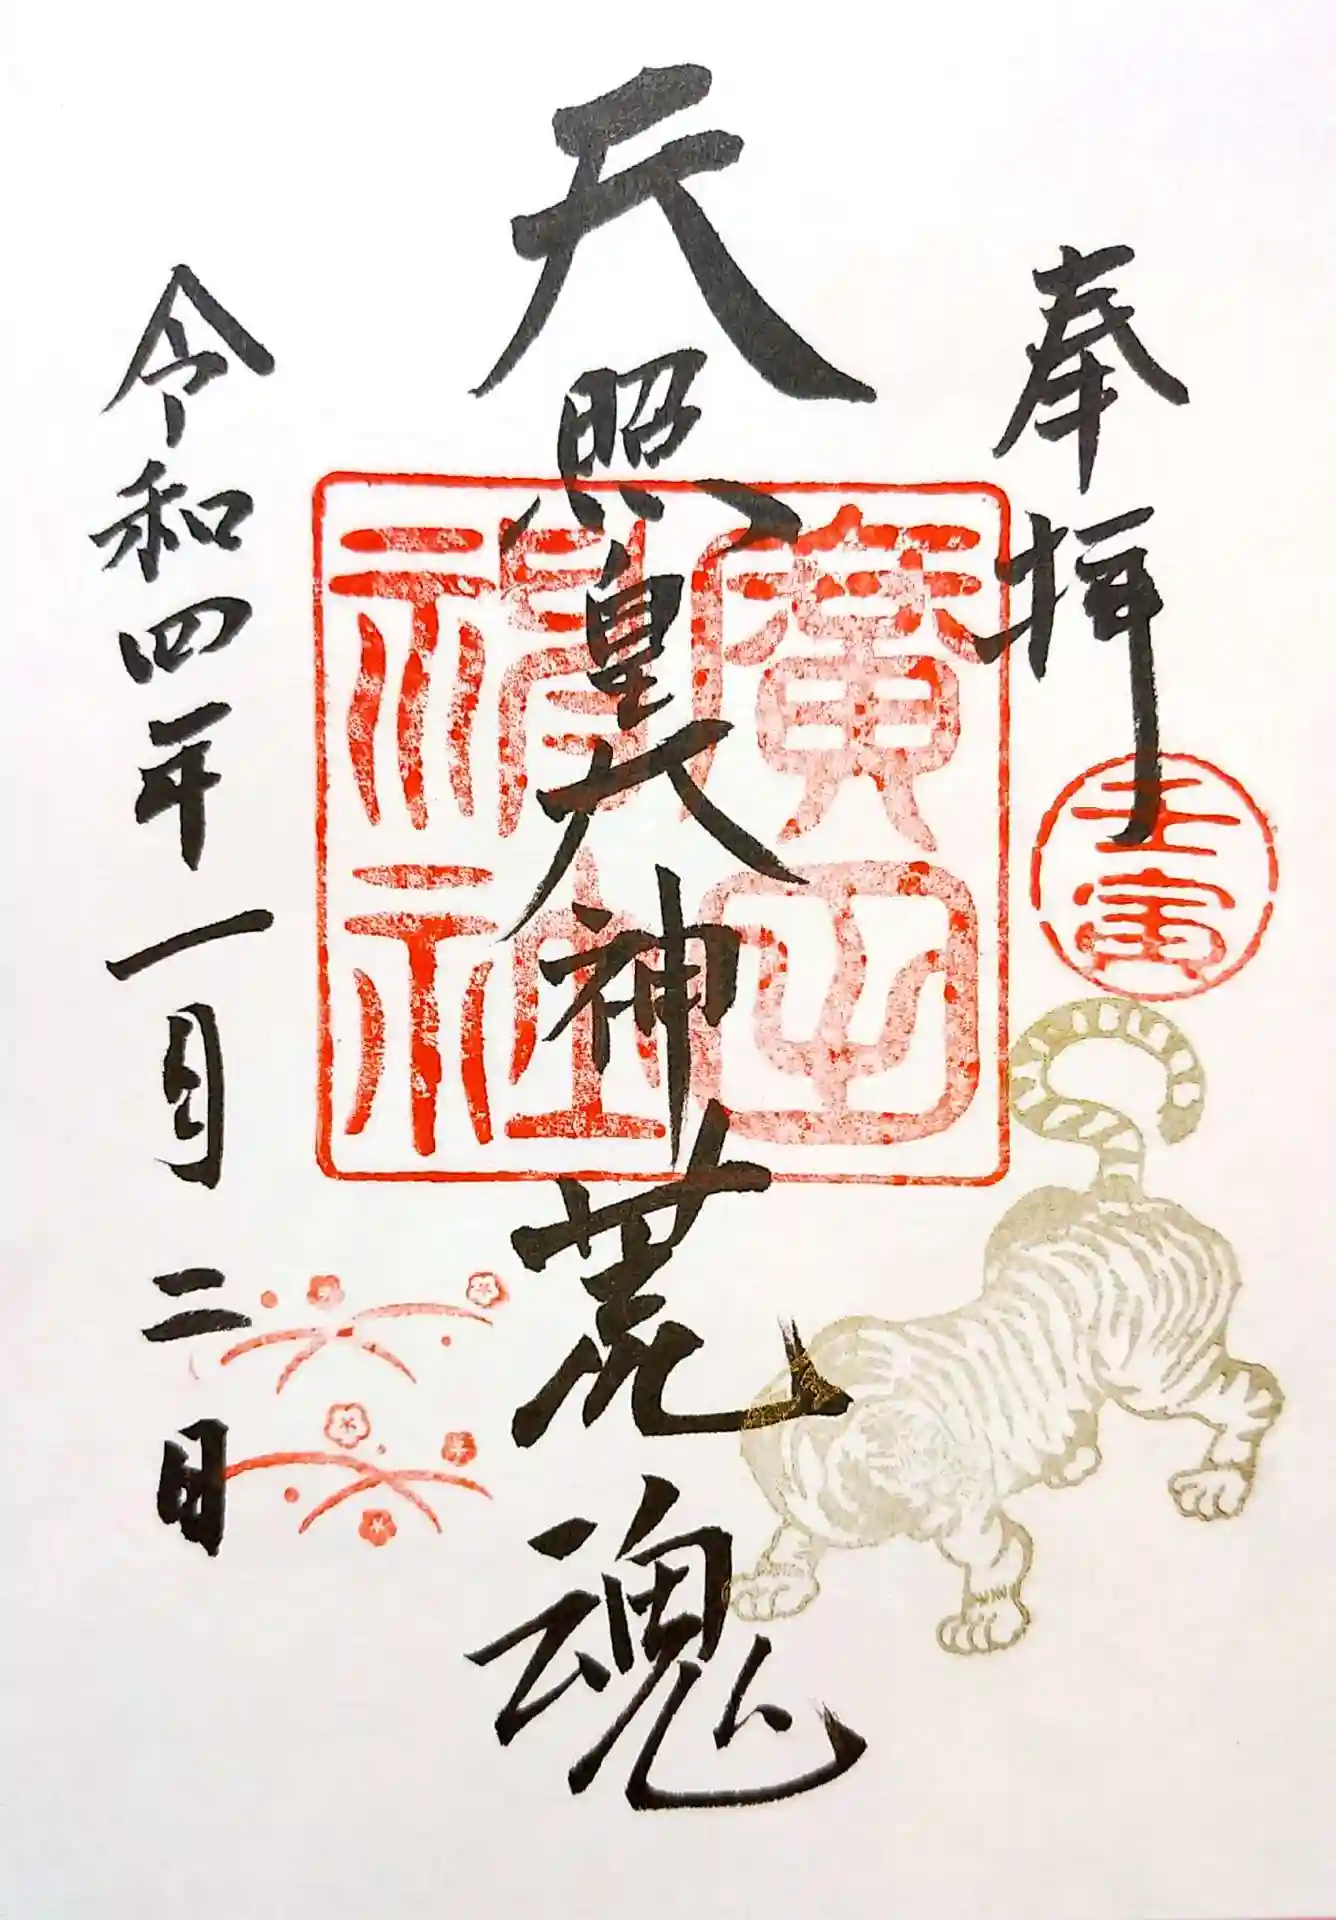 奉拝
壬寅
天照皇大神荒魂
廣田
濱社
令和四年一月二日